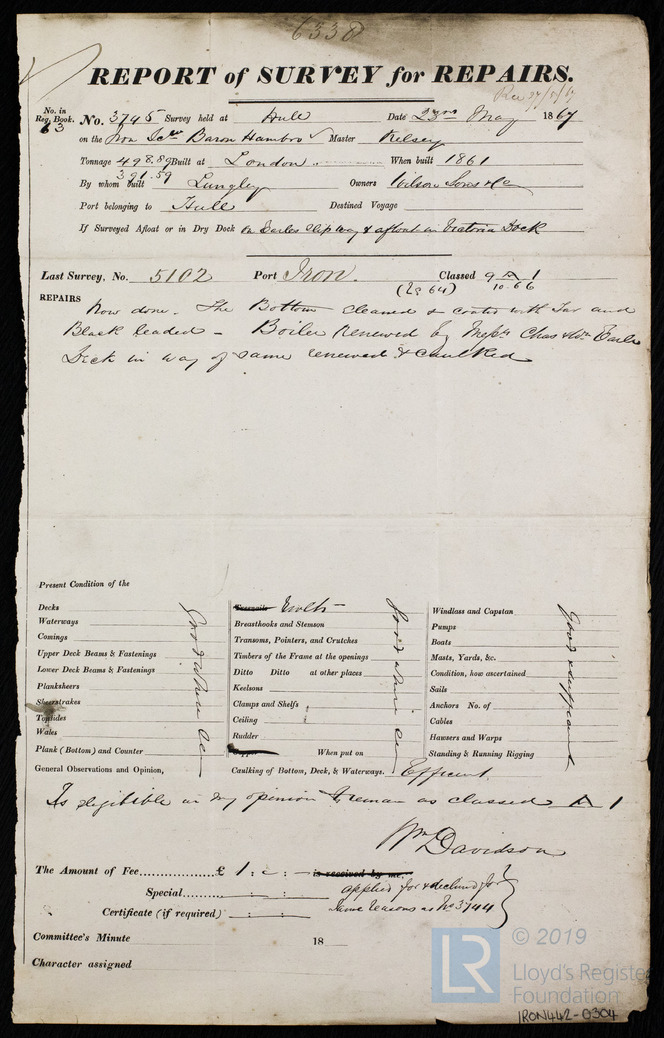 6338
REPORT of SURVEY for REPAIRS.
Rec 27/5/67
No. in Reg. Book. 63
No. 3745 Survey held at Hull Date 23rd May 1867
on the Iron Scr Baron Hambro Master Kelsey
Tonnage 498.89 Built at London When built 1861
391.59
By whom built Langley Owners Wilson Sons & Co
Port belonging to Hull Destined Voyage
If Surveyed Afloat or in Dry Dock on Earles Slip way & afloat in Victoria Dock
Last Survey, No. 5102 Port Iron. Classed 9 A 1
10.66
REPAIRS now done. The Bottom cleaned & coated with Tar and
Black leaded - Boiler renewed by Messrs Chas & Wm Earle
Deck in way of same renewed & caulked
Present Condition of the
Decks
Waterways
Comings
Upper Deck Beams & Fastenings
Lower Deck Beams & Fastenings
Planksheers
Sheerstrakes
Topsides
Wales
Plank (Bottom) and Counter
Good where seen
Treenails Rivets
Breasthooks and Stemson
Transoms, Pointers, and Crutches
Timbers of the Frame at the openings
Ditto Ditto at other places
Keelsons
Clamps and Shelfs
Ceiling
Rudder
Copper When put on
Good where seen
Windlass and Capstan
Pumps
Boats
Masts, Yards, &c.
Condition, how ascertained
Sails
Anchors No. of
Cables
Hawsers and Warps
Standing & Running Rigging
Good & sufficient
General Observations and Opinion, Caulking of Bottom, Deck, & Waterways. Efficient
Is eligible in my opinion to remain as classed A 1
Wm Davidson
The Amount of Fee £ 1 : - : - is received by me,
Special : :
applied for & declined for
Certificate (if required) : :
same reasons as No 3744
Committee's Minute 18
Character assigned
LR
© 2019
Lloyd's Register
Foundation
IRON442-0304